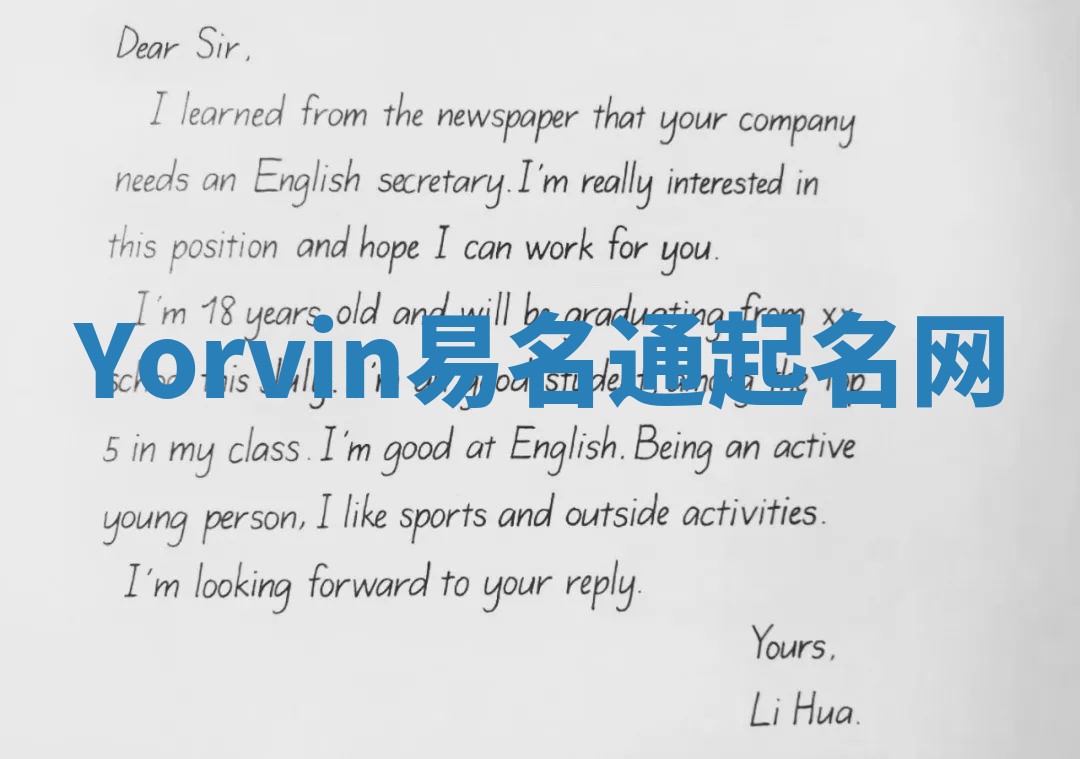 Dear Sir,
I learned from the newspaper that your company
needs an English secretary. I'm really interested in
this position and hope I can work for you.
I'm 18 years old and will be graduating from xx
Yorvin易名通起名网
school this July. I'm a good student, among the Top
5 in my class. I'm good at English. Being an active
young person, I like sports and outside activities.
I'm looking forward to your reply.
Yours,
Li Hua.